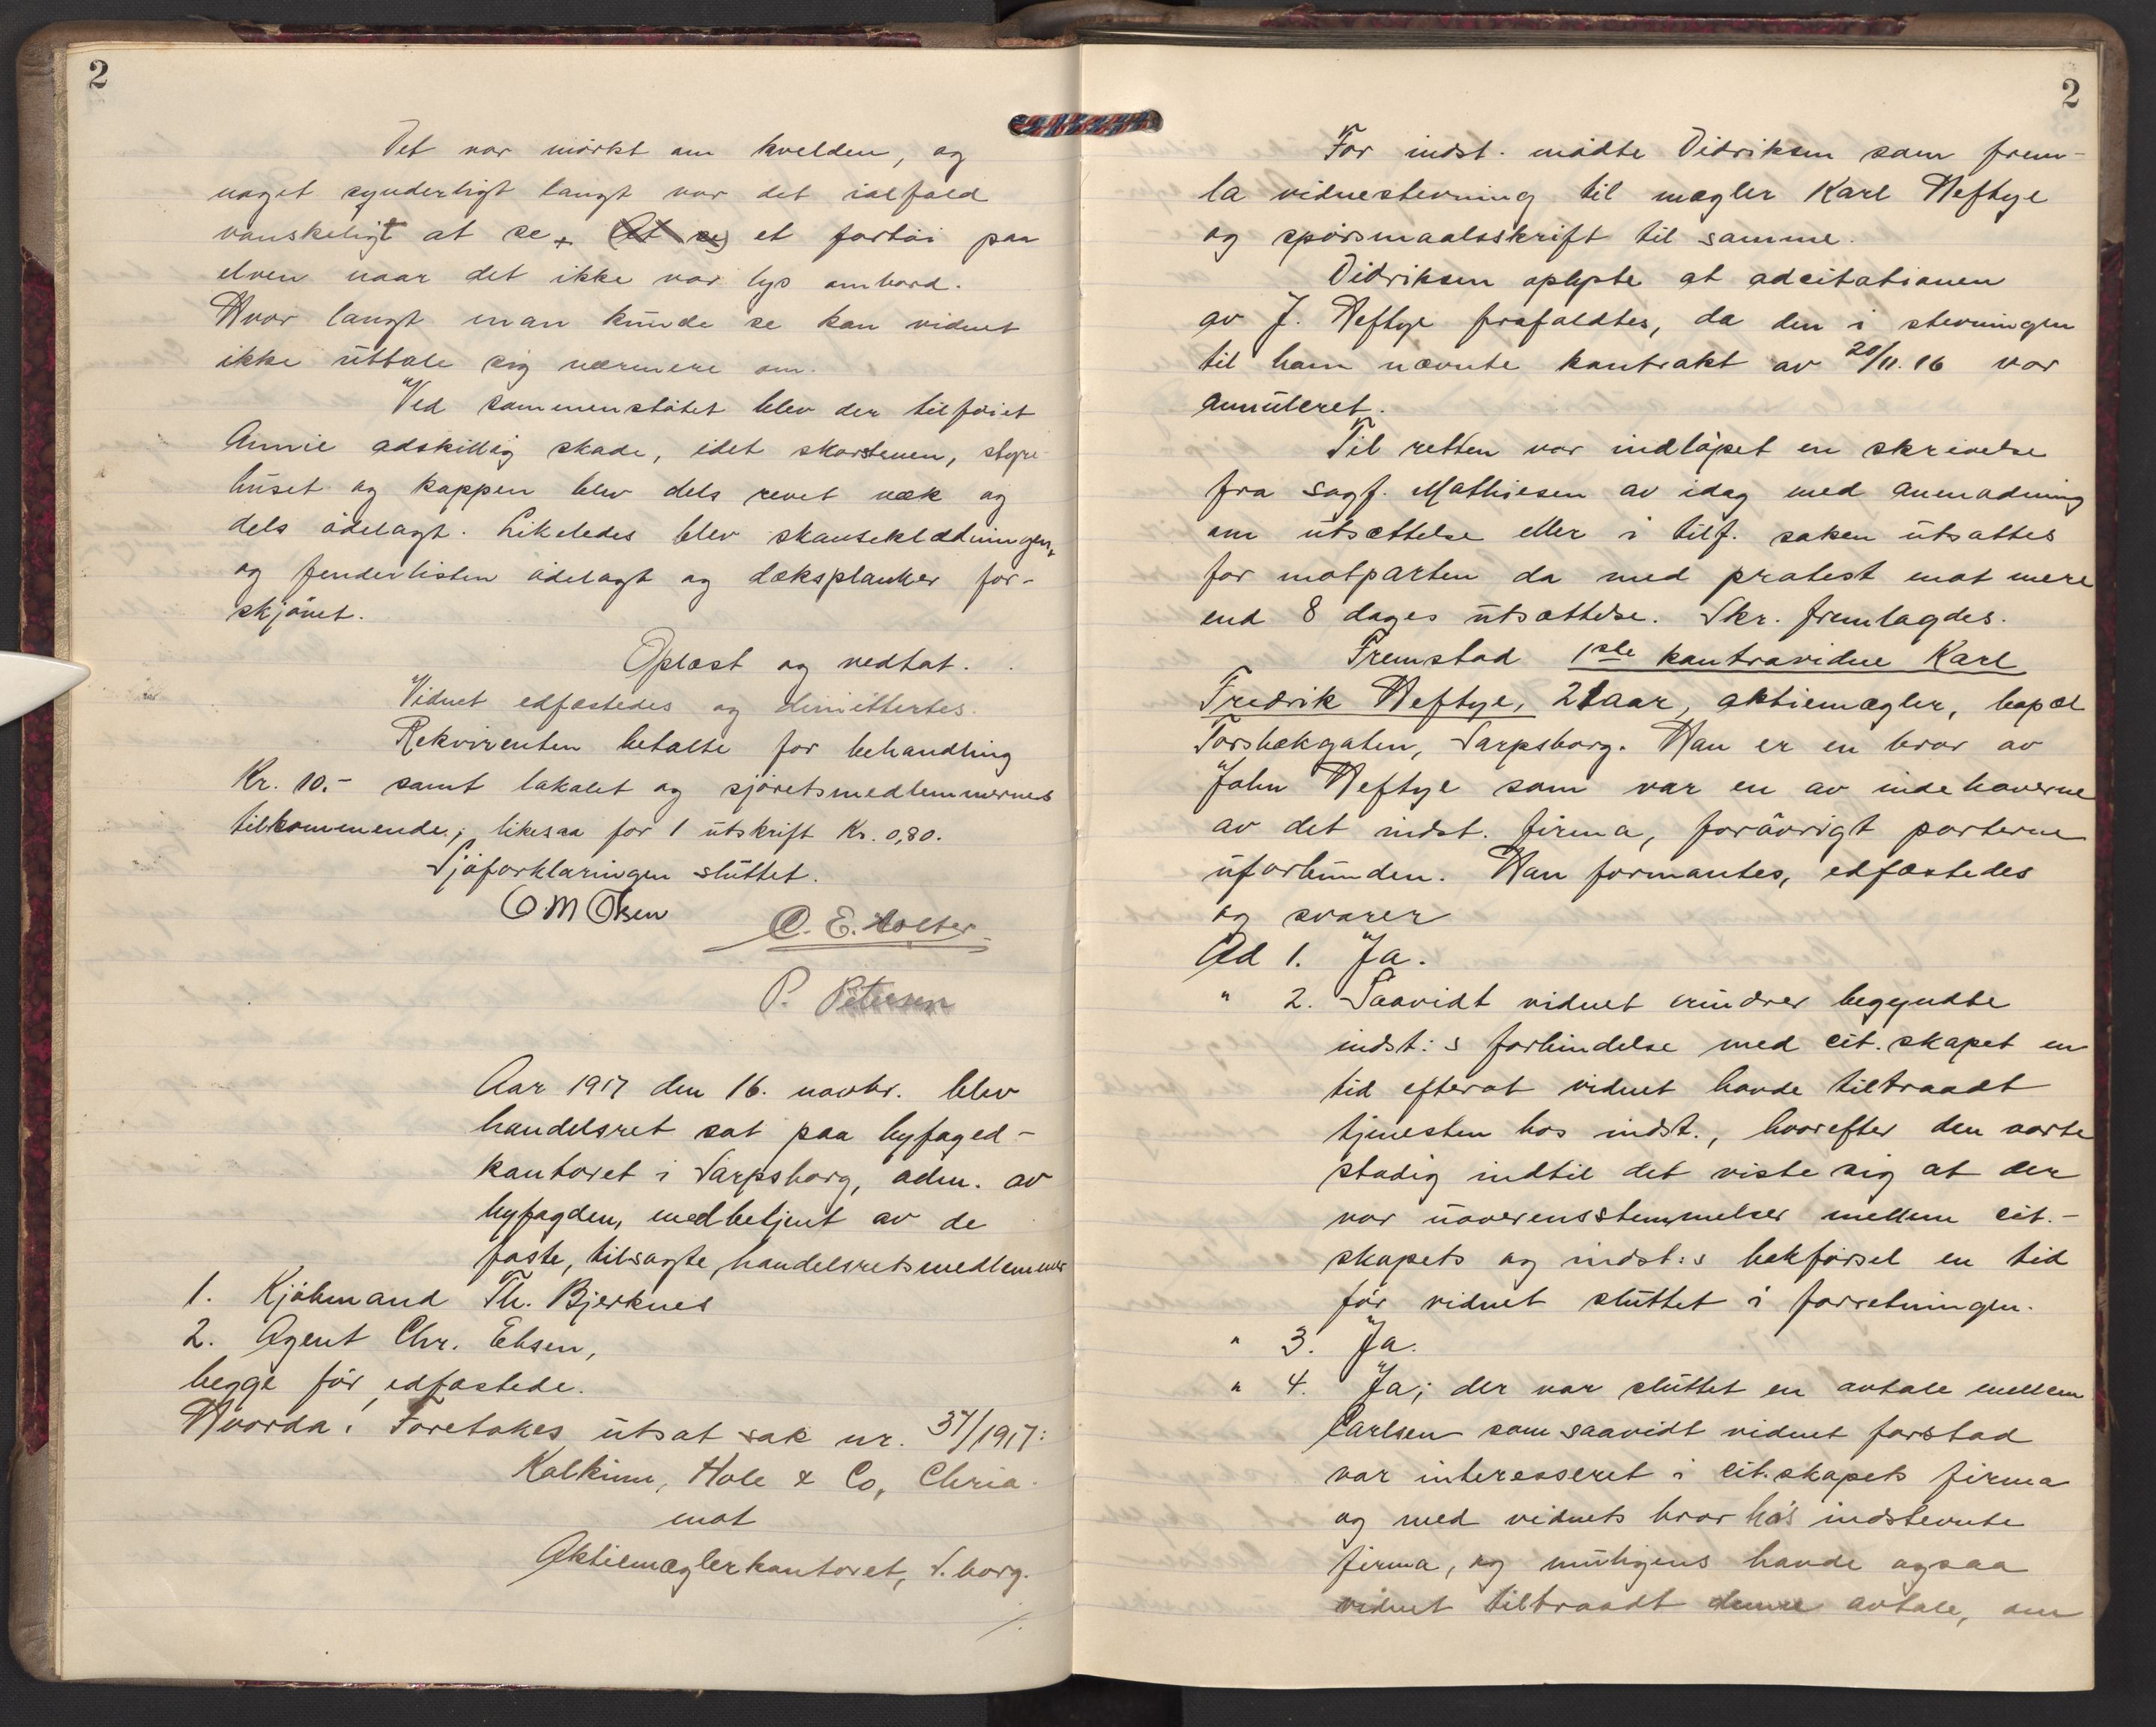 2
Det var mørkt om kvelden, og
noget synderligt langt var det ialfald
vanskeligt at se et fartøi paa
elven naar det ikke var lys ombord.
Hvor langt man kunde se kan vidnet
ikke uttale sig nærmere om.
Ved sammenstøtet blev der tilføiet
Annie adskillig skade, idet skorstenen, styre-
huset og kappen blev dels revet væk og
dels ødelagt. Likeledes blev skanseklædningen
og fenderlisten ødelagt og dæksplanker for-
skjøvet.
Oplæst og vedtat.
Vidnet edfæstedes og dimittertes.
Rekvirenten betalte for behandling
Kr. 10.- samt lokalet og sjøretsmedlemmernes
tilkommende; likesaa for 1 utskrift Kr. 0,80.
Sjøforklaringen sluttet.
O M Olsen
C. E. Holter
P. Petersen
Aar 1917 den 16. novbr. blev
handelsret sat paa byfoged-
kontoret i Sarpsborg, adm. av
byfogden, medbetjent av de
faste, tilsagte, handelsretsmedlemmer
1. Kjøbmand Th. Bjerknes
2. Agent Chr. Ebsen,
begge før edfæstede.
Hvorda: Foretokes utsat sak nr. 37/1917:
Kalkinn, Hole & Co, Chria.
mot
Aktiemæglerkontoret, S.borg.
./.
2
For indst. mødte Didriksen som frem-
la vidnestevning til mægler Karl Heftye
og spørsmaalsskrift til samme.
Didriksen oplyste at adcitationen
av J. Heftye frafaldtes, da den i stevningen
til ham nævnte kontrakt av 20/11.16 var
annuleret.
Til retten var indløpet en skrivelse
fra sagf. Mathiesen av idag med anmodning
om utsættelse eller i tilf. saken utsattes
for motparten da med protest mot mere
end 8 dages utsættelse. Skr. fremlagdes.
Fremstod 1ste kontravidne Karl
Fredrik Heftye, 21 aar, aktiemægler, bopæl
Torsbekgaten, Sarpsborg. Han er en bror av
John Heftye som var en av indehaverne
av det indst. firma, forøvrigt parterne
uforbunden. Han formantes, edfæstedes
og svarer
Ad 1. Ja.
" 2. Saavidt vidnet erindrer begyndte
indst:s forbindelse med cit.skapet en
tid efterat vidnet havde tiltraadt
tjenesten hos indst., hvorefter den varte
stadig indtil det viste sig at der
var uoverensstemmelser mellem cit.-
skapets og indst:s bokførsel en tid
før vidnet sluttet i forretningen.
" 3. Ja.
" 4. Ja; der var sluttet en avtale mellem
Carlsen som saavidt vidnet forstod
var interesseret i cit.skapets firma
og med vidnets bror hos indstevnte
firma, og muligens havde ogsaa
vidnet tiltraadt denne avtale, om